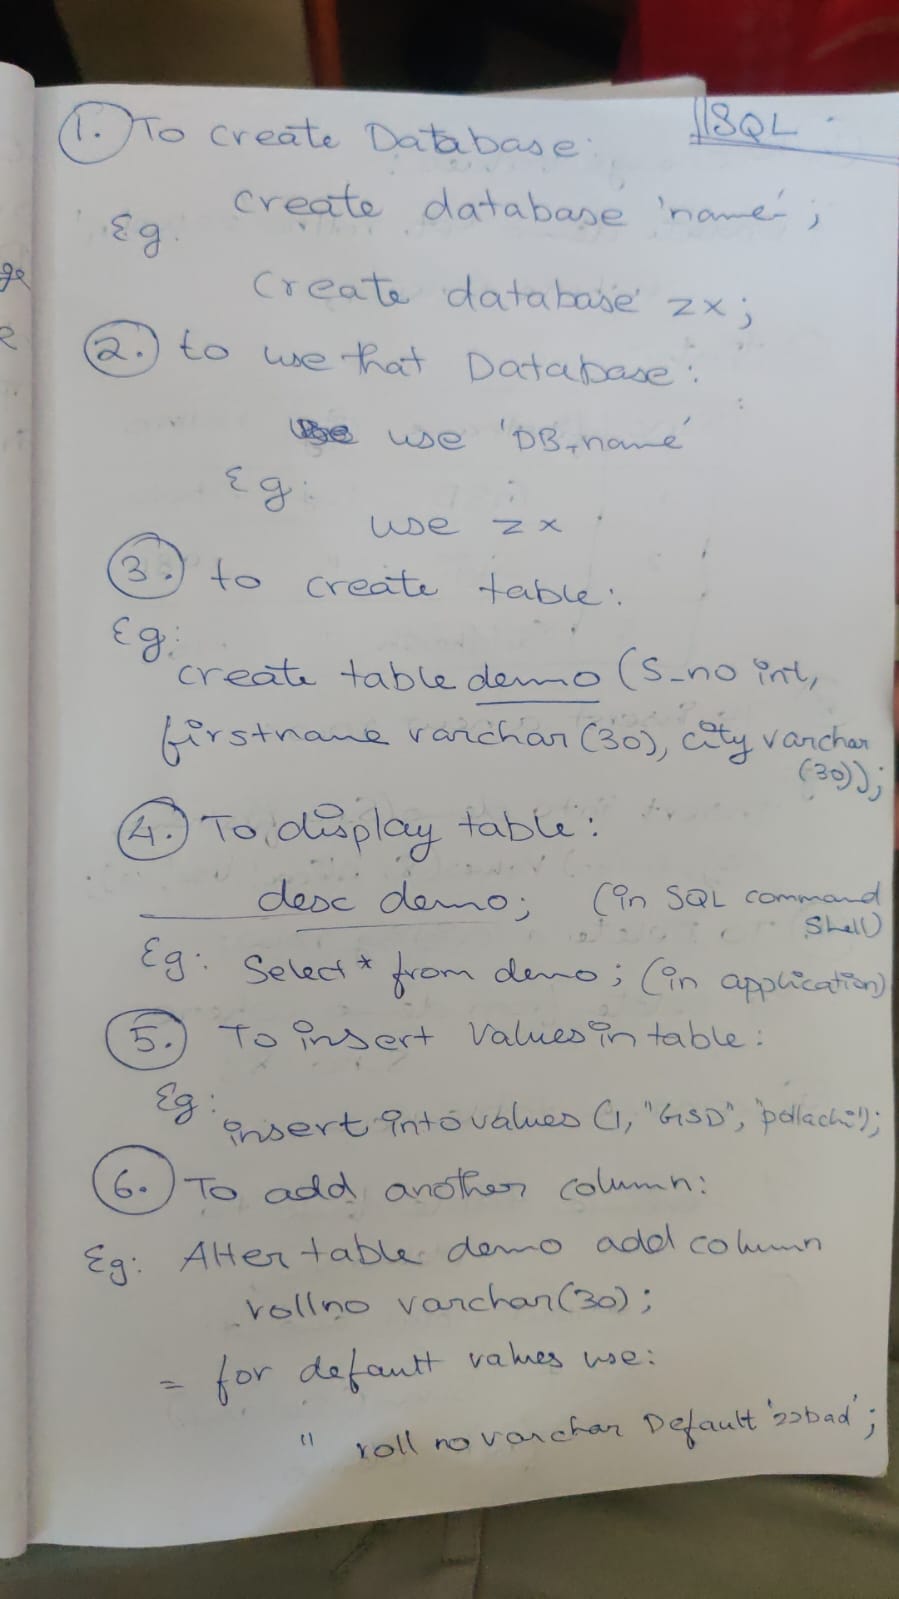 SQL
1. To create Database:
create database 'name';
Eg.
create database zx;
2. to use that Database:
use 'DB_name'
Eg:
use zx
3. to create table:
Eg:
create table demo (S_no int,
firstname varchar (30), city varchar
(30));
4. To display table:
desc demo; (in SQL command
Shell)
Eg: Select * from demo; (in application)
5. To insert values in table:
Eg:
insert into values (1, "GSD", "pollachi");
6. To add another column:
Eg: Alter table demo add column
rollno varchar(30);
= for default values use:
" roll no varchar Default '22bad';